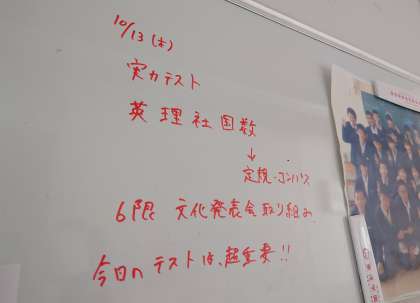 10/13(木)
実力テスト
英理社国数
↓
定規・コンパス
6限 文化発表会取り組み
今日のテストは、超重要!!